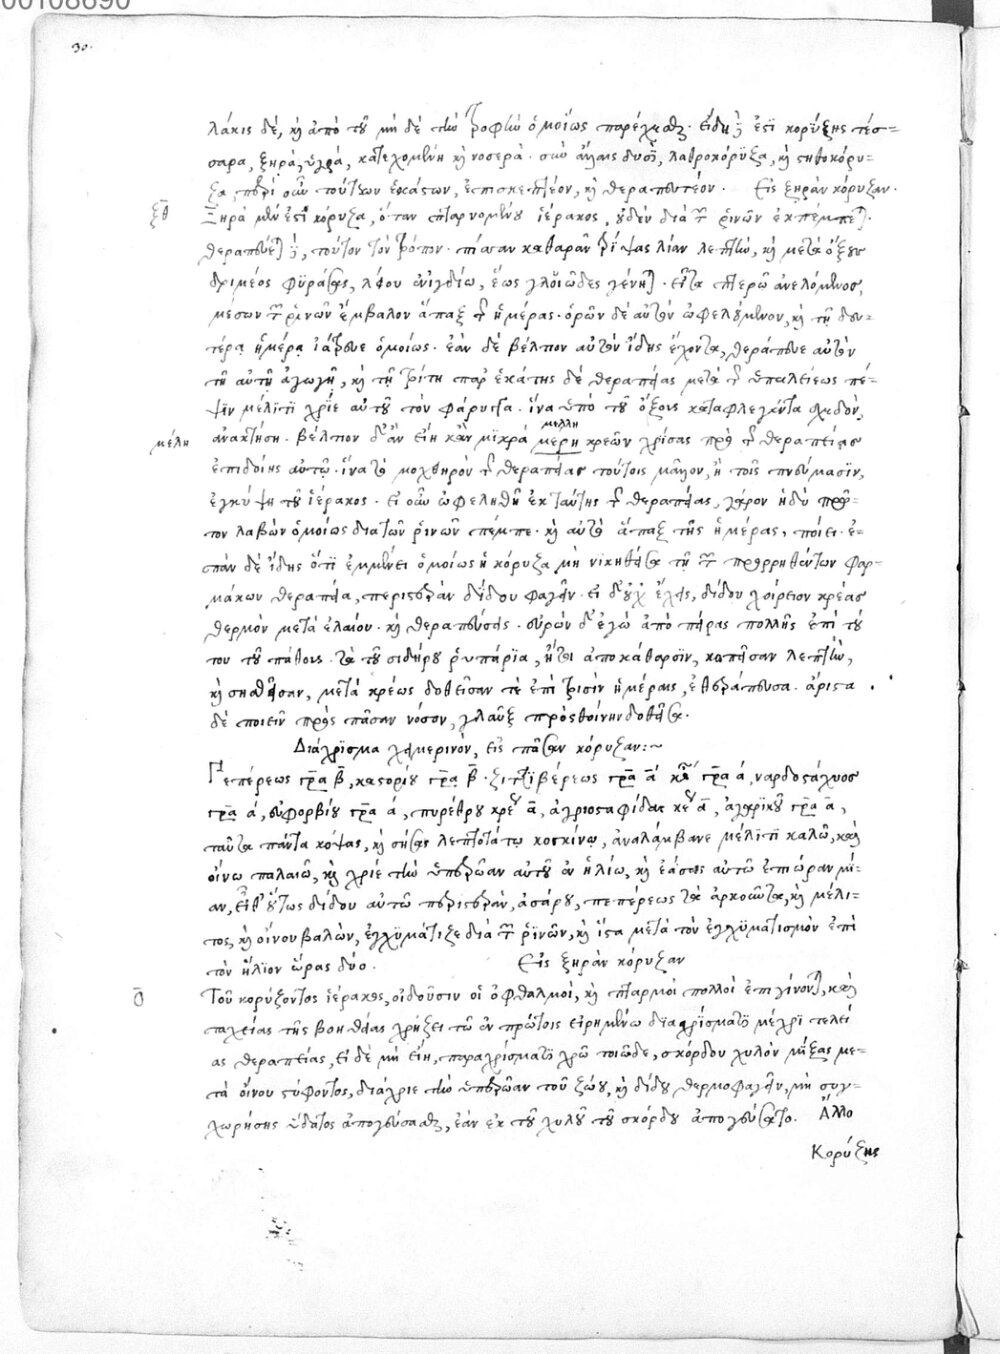 00108690
30.
λάκις δὲ, καὶ ἀπὸ τοῦ μὴ δὲ τὴν τροφὴν ὁμοίως παρέχεσθαι. εἴδη δέ ἐστι κορύζης τέσ=
σαρα, ξηρὰ, ὑγρὰ, κατεχομένη καὶ νοσερὰ. σὺν ἄλλαις δυσὶ, λαθροκόρυζα, καὶ στηθοκόρυ=
ζα, περὶ οὖν τούτων ἑκάστων, ἐπισκεπτέον, καὶ θεραπευτέον. Εἰς ξηρὰν κόρυζαν.
ξθ Ξηρὰ μὲν ἐστὶ κόρυζα, ὅταν πταρνομένου ἱέρακος, οὐδὲν διὰ τῶν ῥινῶν ἐκπέμπεται.
θεραπεύεται δὲ, τοῦτον τὸν τρόπον. πίσσαν καθαρὰν τρίψας λίαν λεπτὴν, καὶ μετὰ ὄξους
δριμέος φυράσας, λύου ἀνιγδίω, ἕως γλοιῶδες γένηται. εἶτα πτερῶ ἀνελόμενος,
μέσων τῶν ῥινῶν ἔμβαλον ἅπαξ τῆς ἡμέρας. ὁρῶν δὲ αὐτὸν ὠφελούμενον, καὶ τῇ δευ=
τέρᾳ ἡμέρᾳ ἰάτρευε ὁμοίως. ἐὰν δὲ βέλτιον αὐτὸν ἴδῃς ἔχοντα, θεράπευε αὐτὸν
τῇ αὐτῇ ἀγωγῇ, καὶ τῇ τρίτῃ παρ' ἑκάτης δὲ θεραπείας μετὰ τῆς ὑπαλείψεως πέ=
ψιν μέλιτι χρῖε αὐτοῦ τὸν φάρυγγα. ἵνα ὑπὸ τοῦ ὄξους καταφλεγέντα σχεδὸν,
μέλη ἀνακτήσῃ. βέλτιον δ' ἂν εἴη κἂν μικρὰ μέρη μέλλη κρεῶν χρίσας πρὸ τῆς θεραπείας
ἐπιδοίης αὐτῷ. ἵνα τὸ μοχθηρὸν τῆς θεραπείας τούτοις μᾶλλον, ἢ τοῖς πνεύμασιν,
ἐγκύψῃ τοῦ ἱέρακος. εἰ οὖν ὠφεληθῇ ἐκ ταύτης τῆς θεραπείας, γάρον ἡδὺ πρῶ=
τον λαβὼν ὁμοίως διὰ τῶν ῥινῶν πέμπε. καὶ αὐτὸ ἅπαξ τῆς ἡμέρας, ποίει. ἐ=
πὰν δὲ ἴδῃς ὅτι ἐμμένει ὁμοίως ἡ κόρυζα μὴ νικηθεῖσα τῇ τῶν προρρηθέντων φαρ=
μάκων θεραπεία, περιστερὰν δίδου φαγεῖν. εἰ δ' οὐχ ἕλῃς, δίδου χοίρειον κρέας
θερμὸν μετὰ ἐλαίου. καὶ θεραπεύσεις. εὑρὼν δ' ἐγὼ ἀπὸ πείρας πολλῆς ἐπὶ τού
του τοῦ πάθους. τὰ τοῦ σιδήρου ῥυπάρια, ἤτοι ἀποκάθαρσιν, κοπεῖσαν λεπτὴν,
καὶ σησθεῖσαν, μετὰ κρέως δοθεῖσαν τε ἐπὶ τρισὶν ἡμέραις, ἐθεράπευσα. ἄριστα
δὲ ποιεῖν πρὸς πᾶσαν νόσον, γλαὺξ πρὸς θοίνην δοθεῖσα.
Διάχρισμα χειμερινὸν, εἰς πᾶσαν κόρυζαν:~
Πεπέρεως γρα β, καστορίου γρα β. ζιγγιβέρεως γρα α καὶ γρα ά, ναρδοστάχυος
γρα ά, εὐφορβίου γρα ά, πυρέθρου κρε α, ἀγριοσταφίδας κε α, ἀγαρικοῦ γρα α,
ταῦτα πάντα κόψας, καὶ σήσας λεπτοτάτῳ κοσκίνῳ, ἀναλάμβανε μέλιτι καλῶ, καὶ
οἴνω παλαιῶ, καὶ χρίε τὴν ὑπερώαν αὐτοῦ ἐν ἡλίω, καὶ ἐάσας αὐτὸν ἐπὶ ὥραν μί=
αν, εἶθ' οὕτως δίδου αὐτῶ περιστερὰν, ἀσάρου, πεπέρεως τὰ ἀρκοῦντα, καὶ μέλι=
τος, καὶ οἴνου βαλὼν, ἐγχυμάτιζε διὰ τῶν ῥινῶν, καὶ ἵστα μετὰ τὸν ἐγχυματισμὸν ἐπὶ
τὸν ἥλιον ὥρας δύο. Εἰς ξηρὰν κόρυζαν
ο Τοῦ κορύζοντος ἱέρακος, οἰδοῦσιν οἱ ὀφθαλμοὶ, καὶ πταρμοὶ πολλοὶ ἐπιγίνονται, καὶ
ταχείας τῆς βοηθείας χρήζει τῶ ἐν πρώτοις εἰρημένω διαχρίσματι μέχρι τελεί
ας θεραπείας, εἰ δὲ μὴ εἴη, παραχρίσματι χρῶ τοιῶδε, σκόρδου χυλὸν μίξας με=
τὰ οἴνου στύφοντος, διάχριε τὴν ὑπερώαν τοῦ ζώου, καὶ δίδου θερμοφαγεῖν, μὴ συγ=
χωρήσῃς ὕδατος ἀπογεύσασθαι, ἐὰν ἐκ τοῦ χυλοῦ τοῦ σκόρδου ἀπογεύσαιτο. Ἄλλο
Κορύζης